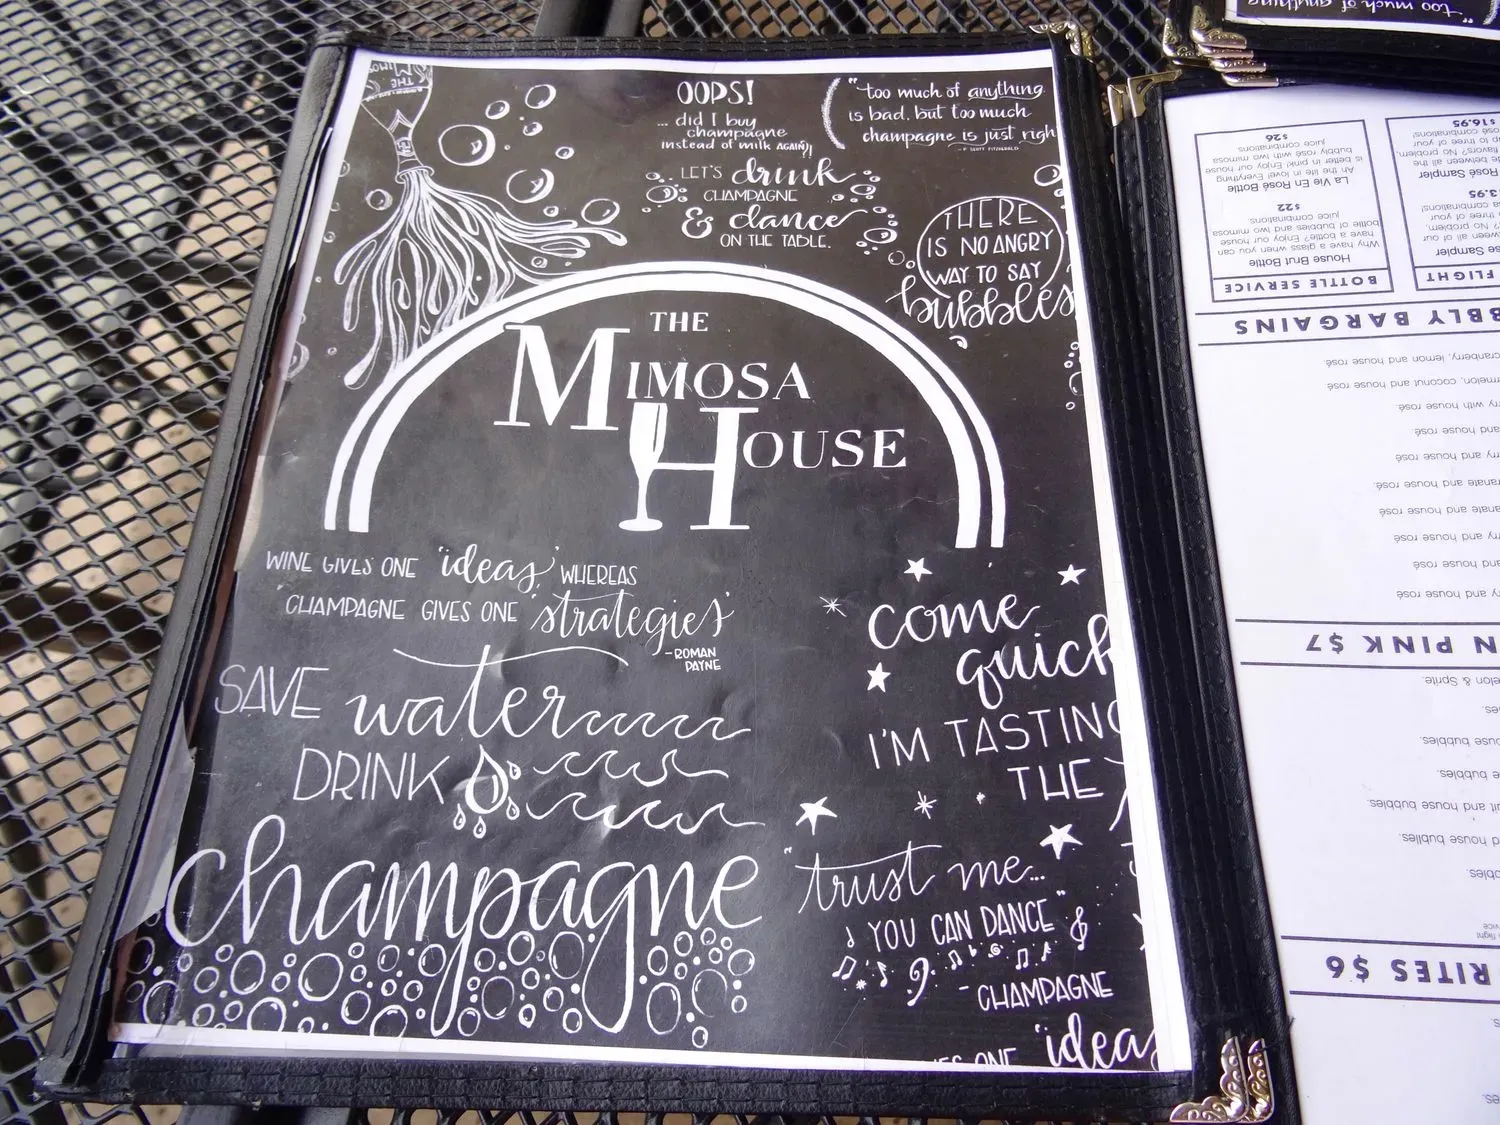 THE
MIMOS
OOPS!
... did I buy
champagne
instead of milk AGAIN?!
"too much of anything
is bad, but too much
champagne is just righ
- F. SCOTT FITZGERALD
LET'S drink
CHAMPAGNE
& dance
ON THE TABLE.
THERE
IS NO ANGRY
WAY TO SAY
bubbles
THE
MIMOSA
HOUSE
WINE GIVES ONE 'ideas,' WHEREAS
CHAMPAGNE GIVES ONE 'strategies'
-ROMAN
PAYNE
SAVE water
DRINK
champagne
come
quick
I'M TASTING
THE
"trust me...
YOU CAN DANCE"
- CHAMPAGNE
ES ONE 'ideas
"too much of anything
BOTTLE SERVICE
House Brut Bottle
Why have a glass when you can
have a bottle? Enjoy our house
bottle of bubbles and two mimosa
juice combinations.
$22
La Vie En Rosé Bottle
Ah the life in love! Everything
is better in pink! Enjoy our house
bubbly rosé with two mimosa
juice combinations
$26
FLIGHT
se Sampler
ween all of our
n? No problem,
of three of your
sa combinations!
3.95
Rosé Sampler
se between all the
flavors? No problem,
up to three of your
rosé combinations!
$16.95
BBLY BARGAINS
cranberry, lemon and house rosé
rmelon, coconut and house rosé
rry with house rosé
and house rosé
rry and house rosé
granate and house rosé
anate and house rosé
rry and house rosé
and house rosé
ry and house rosé
N PINK $7
elon & Sprite.
es.
use bubbles.
e bubbles.
it and house bubbles
d house bubbles.
bbles.
RITES $6
s.
es.